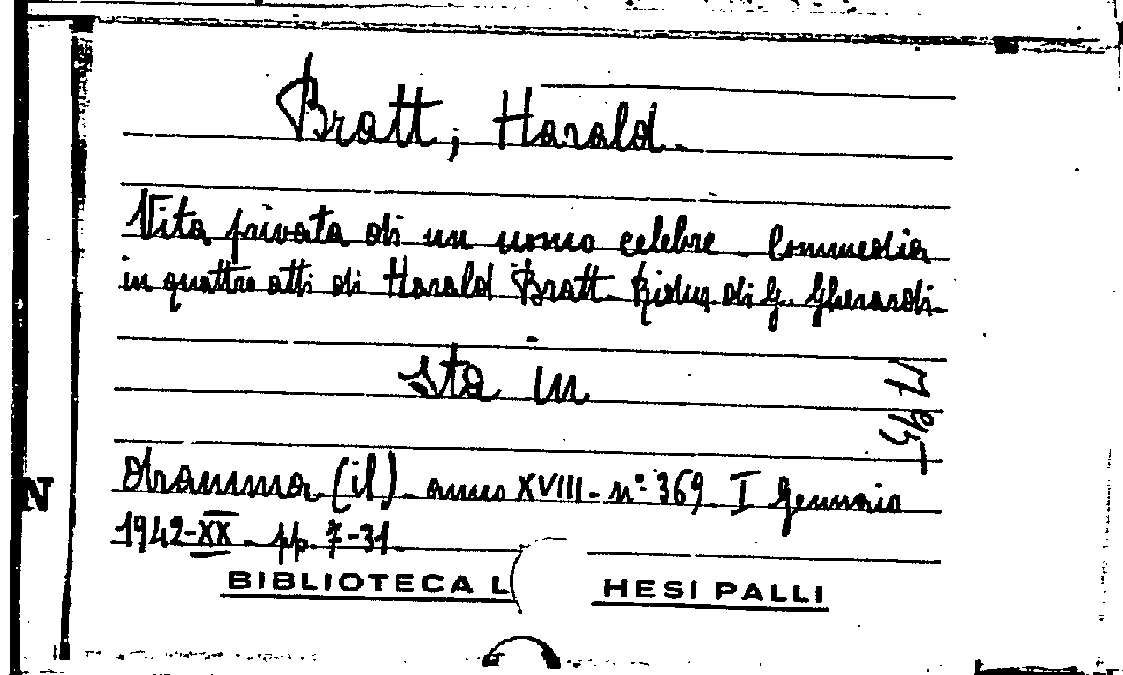 Bratt, Harald.
Vita privata di un uomo celebre. Commedia
in quattro atti di Harald Bratt. Riduz. di G. Gherardi.
sta in
dramma (il). anno XVIII. n° 369. I Gennaio
1942-XX. pp. 7-31.
BIBLIOTECA L HESI PALLI
N